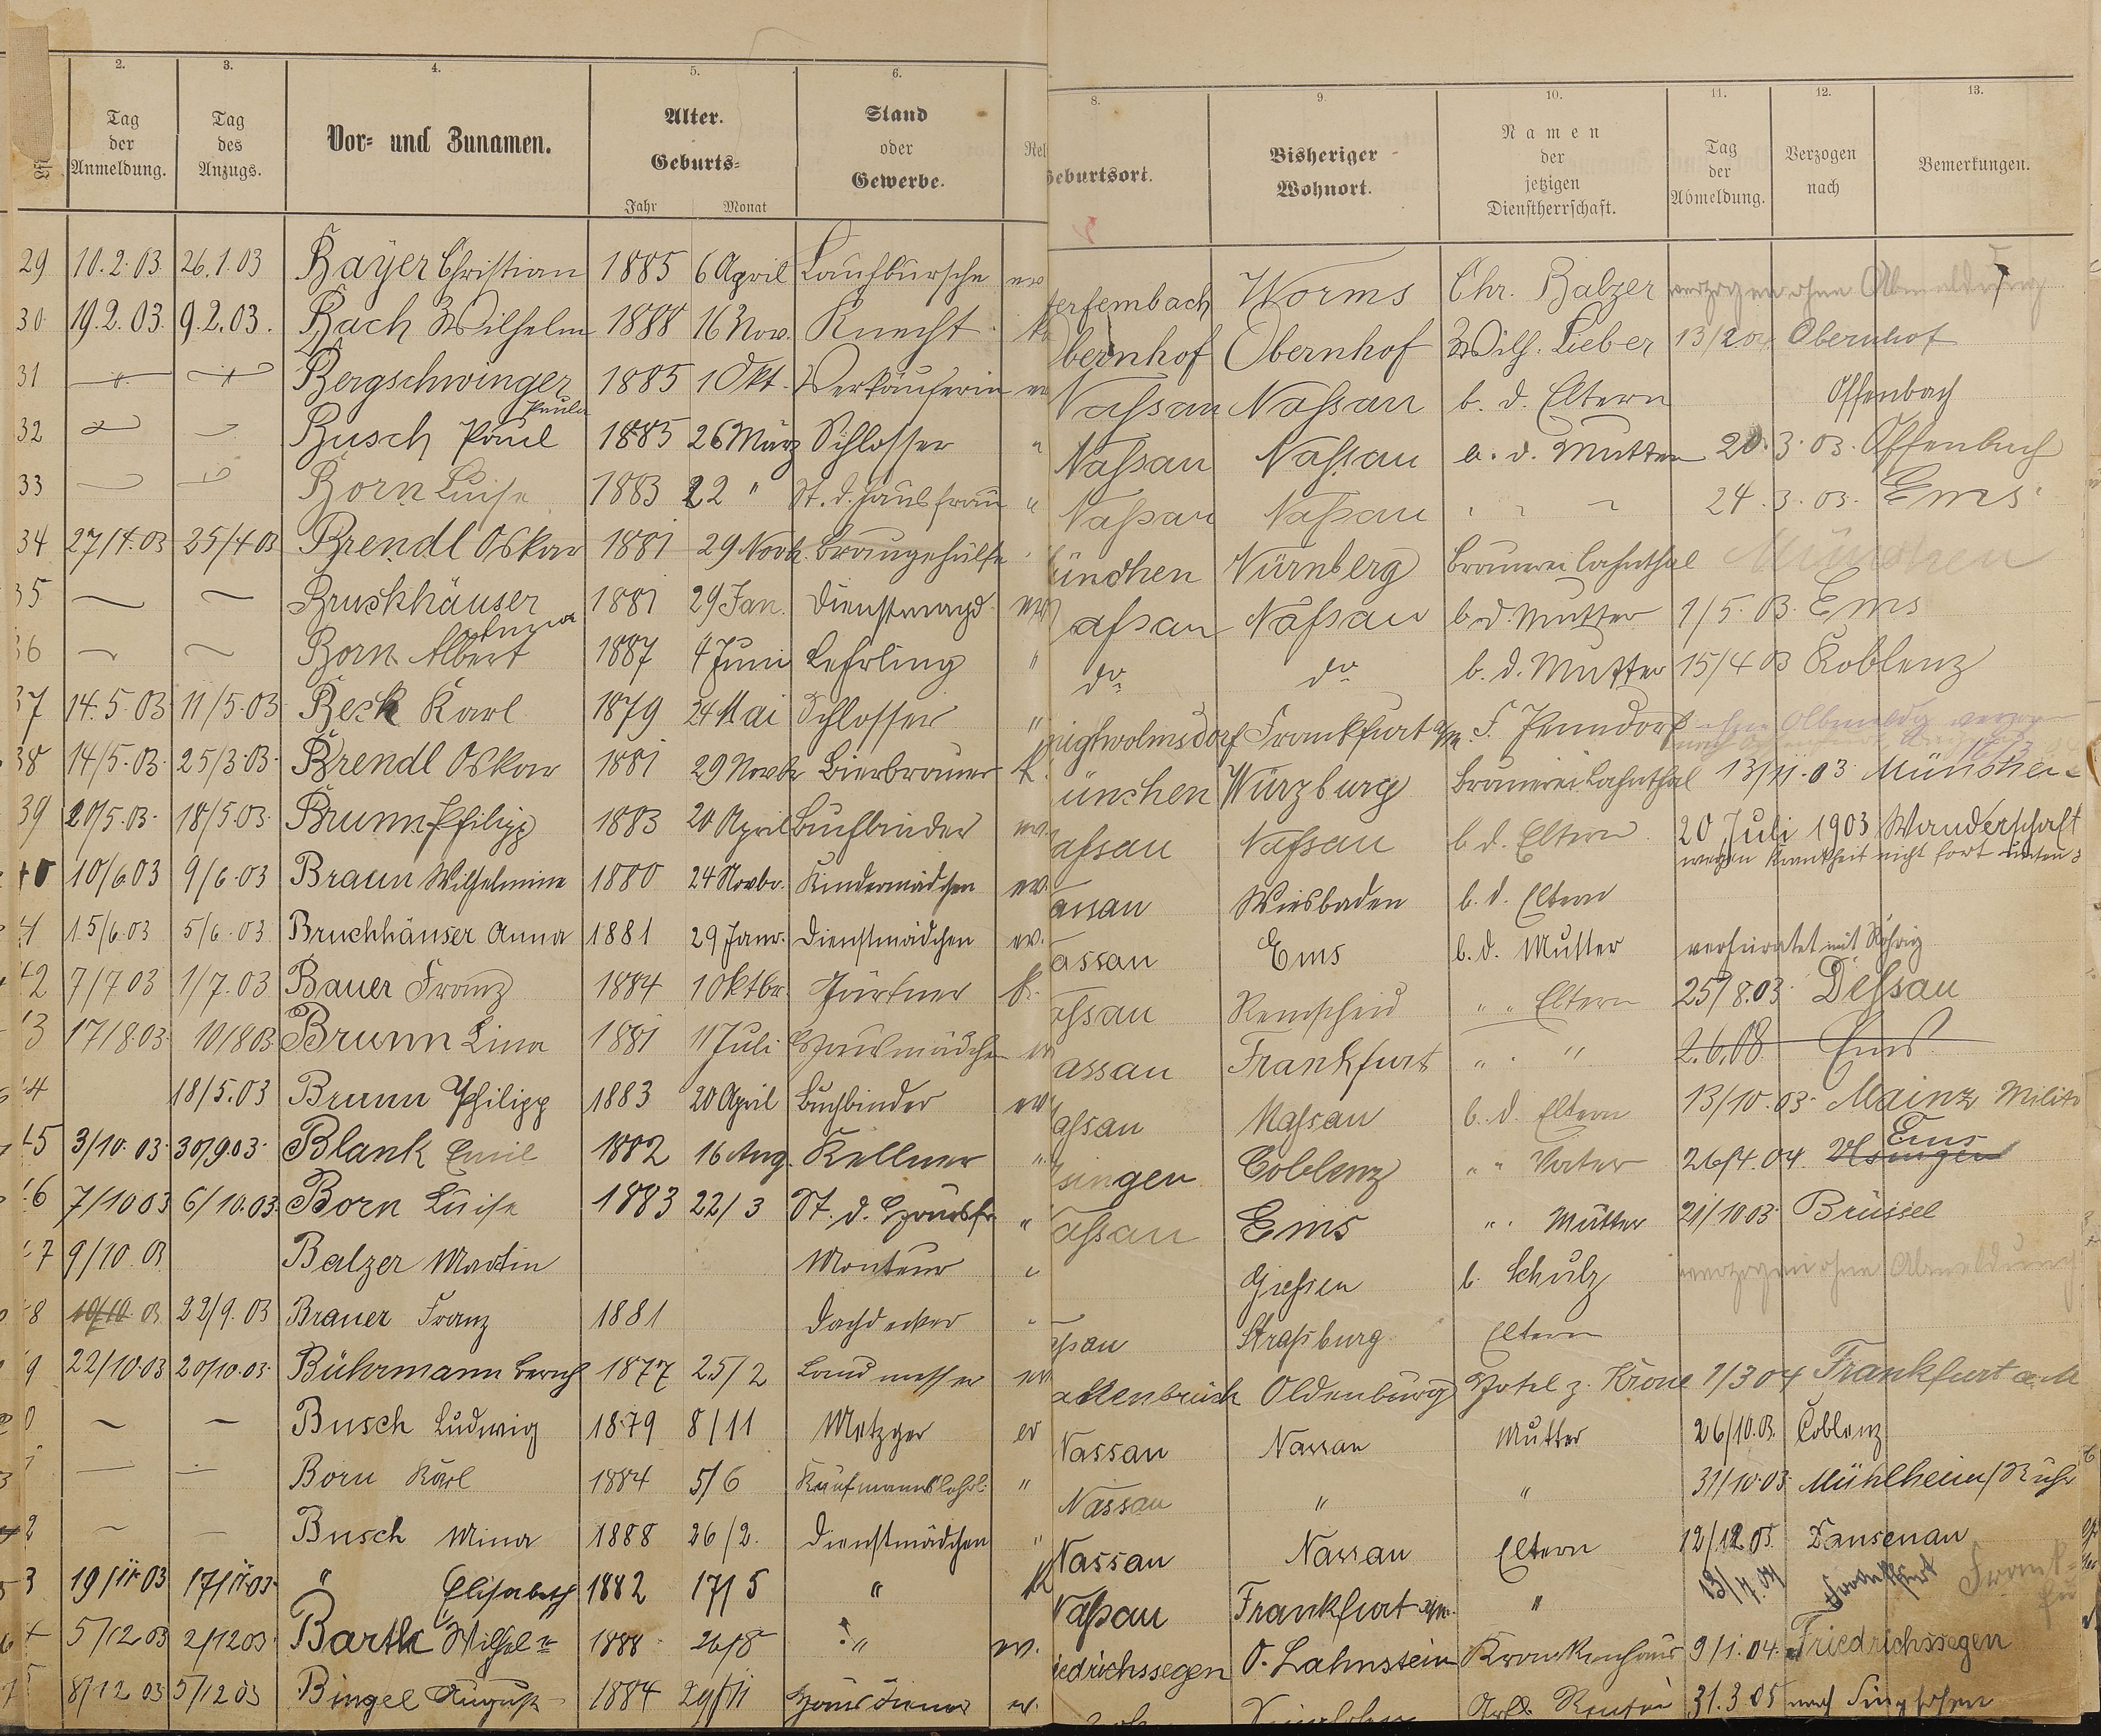 2. 3. 4. 5. 6. 8. 9. 10. 11. 12. 13.
Tag der Anmeldung. Tag des Anzugs. Vor- und Zunamen. Alter. Geburts- Jahr Monat Stand oder Gewerbe. Rel Geburtsort. Bisheriger Wohnort. Namen der jetzigen Dienstherrschaft. Tag der Abmeldung. Verzogen nach Bemerkungen.
29 10.2.03 26.1.03 Bayer Christian 1885 6 April Laufbursche ev Worms Chr. Balzer verzogen ohne Abmeldung
30 19.2.03. 9.2.03. Bach Wilhelm 1888 16 Nov. Knecht Obernhof Obernhof Wilh. Lieber Obernhof
31 Bergschwinger Paula 1885 1 Okt. Verkäuferin ev Nassau Nassau b. d. Eltern Offenbach
32 Busch Paul 1885 26 März Schlosser " Nassau Nassau b. d. Mutter 20.3.03. Offenbach
33 Born Luise 1883 22 " St. d. Hausfrau " Nassau Nassau " " " 24.3.03. Ems
34 27/4.03 25/4 03 Brendl Oskar 1881 29 Novb. Braugehülfe München Nürnberg Brauerei Lahnthal München
35 Bruckhäuser Anna 1881 29 Jan. Dienstmagd ev Nassau Nassau b. d. Mutter 1/5.03. Ems
36 Born Albert 1887 4 Juni Lehrling " do do b. d. Mutter 15/4 03 Koblenz
37 14.5.03 11/5.03 Beck Karl 1879 24 Mai Schlosser " Frankfurt a/m. F. Penndorf ohne Abmeldg verzog
38 14/5.03. 25/3.03. Brendl Oskar 1881 29 Novbr Bierbrauer k. München Würzburg Brauerei Lahnthal 13/11.03 München
39 20/5.03. 18/5.03. Brunn Philipp 1883 20 April Buchbinder ev. Nassau Nassau b d. Eltern 20 Juli 1903 Wanderschaft
wegen Krankheit nicht fort unten
40 10/6 03 9/6.03 Braun Wilhelmine 1880 24 Novbr. Kindermädchen ev. Nassau Wiesbaden b. d. Eltern
41 15/6.03 5/6.03 Bruchhäuser Anna 1881 29 Janr. Dienstmädchen ev. Nassau Ems b. d. Mutter verheiratet mit Röhrig
42 7/7 03 1/7.03 Bauer Franz 1884 1 Oktbr. Gärtner k. Nassau Remscheid " " Eltern 25/8.03 Dessau
43 17/8.03. 10/8 03 Brunn Lina 1881 11 Juli Hausmädchen ev Nassau Frankfurt " " " 2.6.08 Ems
44 18/5.03 Brunn Philipp 1883 20 April Buchbinder ev Nassau Nassau b. d. Eltern 13/10.03. Mainz Militä
45 3/10.03. 30/9.03. Blank Emil 1882 16 Aug. Kellner " Usingen Coblenz " " Vater 26/4.04. Usingen Ems
46 7/10 03 6/10.03. Born Luise 1883 22/3 St. d. Hausfr. " Nassau Ems " " Mutter 21/10 03. Brüssel
47 9/10.03 Balzer Martin Monteur " Giessen b. Schulz verzogen ohne Abmeldung
48 10/10.03 22/9.03 Brauer Franz 1881 Dachdecker " Nassau Strassburg Eltern
49 22/10.03 20/10.03. Bührmann Bernh 1877 25/2 Landmesser ev Oldenburg Hotel z. Krone 1/3 04 Frankfurt a. M
50 Busch Ludwig 1879 8/11 Metzger ev Nassau Nassau Mutter 26/10.03. Coblenz
51 Born Karl 1884 5/6 Kaufmannslehrl. " Nassau " " 31/10.03. Mühlheim/Ruhr
52 Busch Mina 1888 26/2. Dienstmädchen " Nassau Nassau Eltern Dausenau
53 19/11.03 17/11.03. " Elisabeth 1882 17/5 " k Nassau Frankfurt a/m. " Frankfurt Frankfu
54 5/12 03 2/12 03. Barth Wilhel 1888 26/8 " ev. Friedrichssegen O. Lahnstein Krankenhaus 9/1.04. Friedrichssegen
55 8/12 03 5/12 03 Bingel August 1884 29/11 Hausdiener ev. 31.3.05 nach Singhofen